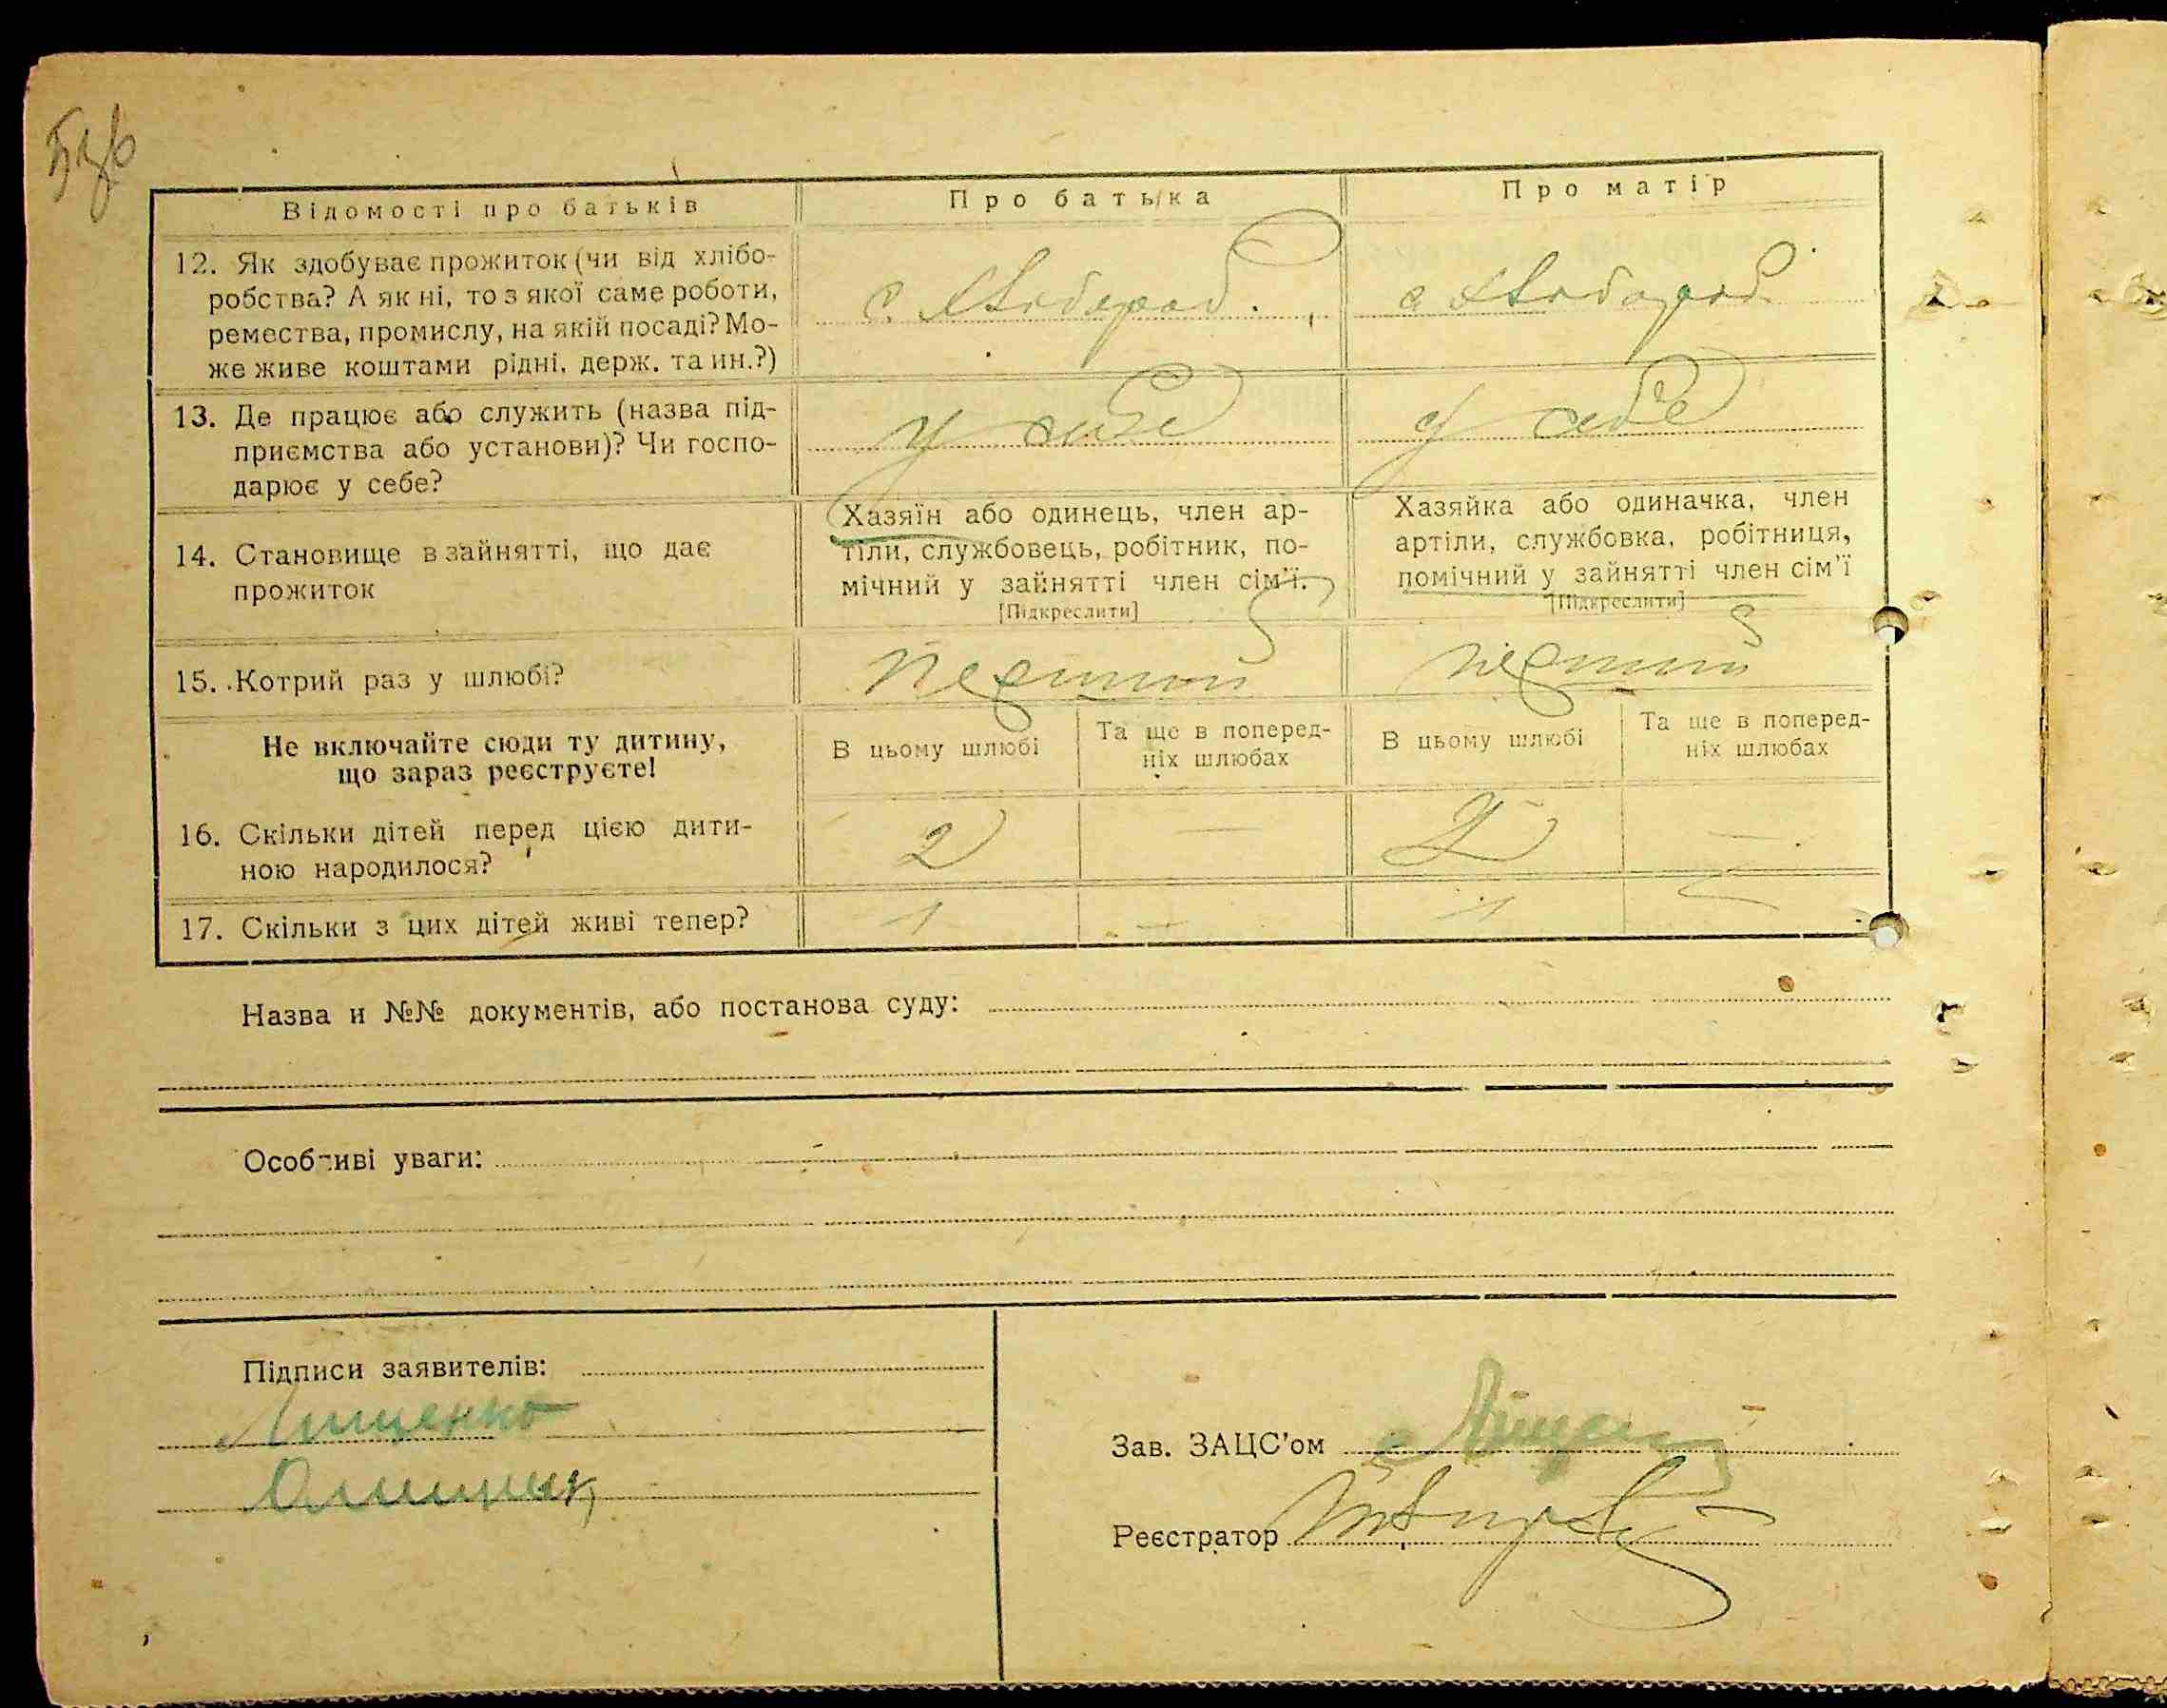 Відомості про батьків
Про батька
Про матір
12. Як здобуває прожиток (чи від хлібо-
робства? А як ні, то з якої саме роботи,
ремества, промислу, на якій посаді? Мо-
же живе коштами рідні, держ. та ин.?)
с. Хлібороб.
с. Хлібороб
13. Де працює або служить (назва під-
приємства або установи)? Чи госпо-
дарює у себе?
у себе
у себе
14. Становище в зайнятті, що дає
прожиток
Хазяїн або одинець, член ар-
тіли, службовець, робітник, по-
мічний у зайнятті член сім'ї.
[Підкреслити]
Хазяйка або одиначка, член
артіли, службовка, робітниця,
помічний у зайнятті член сім'ї
[Підкреслити]
15. Котрий раз у шлюбі?
перший
перший
Не включайте сюди ту дитину,
що зараз реєструєте!
В цьому шлюбі
Та ще в поперед-
ніх шлюбах
В цьому шлюбі
Та ще в поперед-
ніх шлюбах
16. Скільки дітей перед цією дити-
ною народилося?
2
—
2
—
17. Скільки з цих дітей живі тепер?
1
—
1
—
Назва и №№ документів, або постанова суду:
Особливі уваги:
Підписи заявителів:
Лищенко
Зав. ЗАЦС'ом
Реєстратор